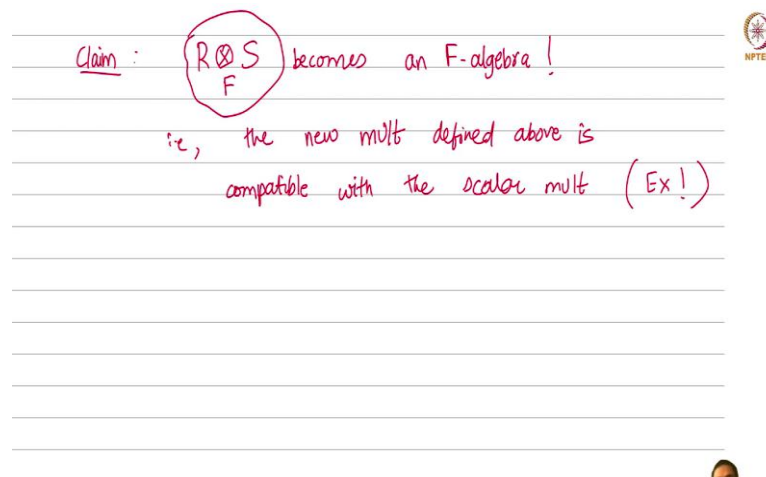 Claim : R ⊗ S becomes an F-algebra !
F
ie, the new mult defined above is
compatible with the scalar mult (Ex!)
NPTE